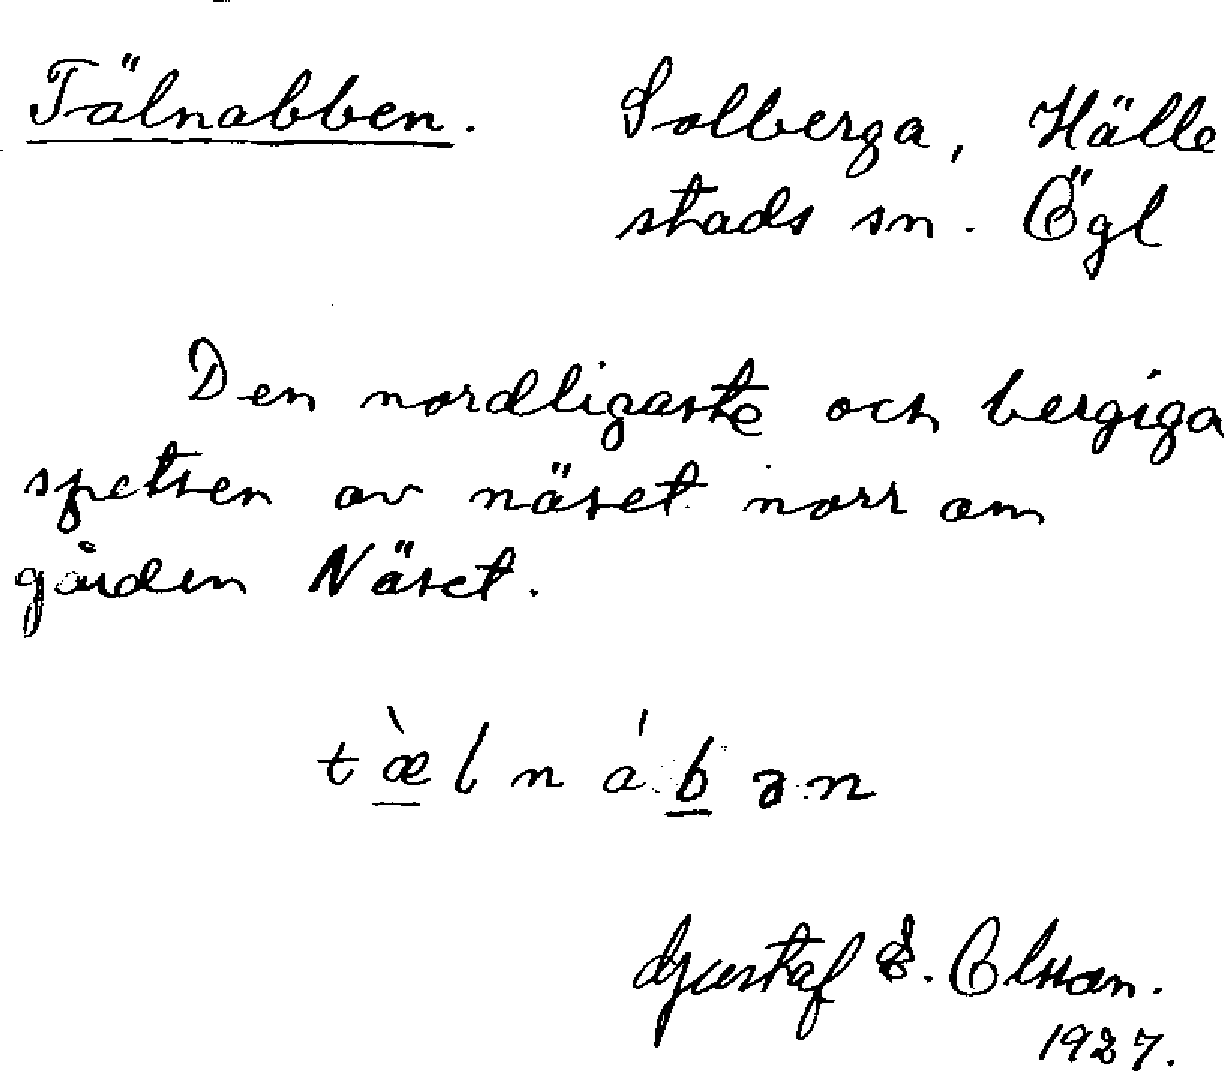 Tälnabben. Solberga, Hälle
stads sn. Ögl
Den nordligaste och bergiga
spetsen av näset norr om
gården Näset.
tæ̀lnábən
Gustaf E. Olsson.
1927.